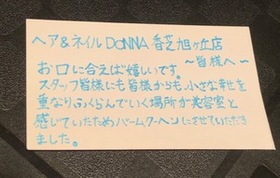 ヘア&ネイル DONNA 香芝旭ヶ丘店
～皆様へ～
お口に合えば嬉しいです。
スタッフ皆様にも皆様からも小さな幸せを
重なりふくらんでいく場所が美容室と
感じていたためバームクーヘンにさせていただき
ました。